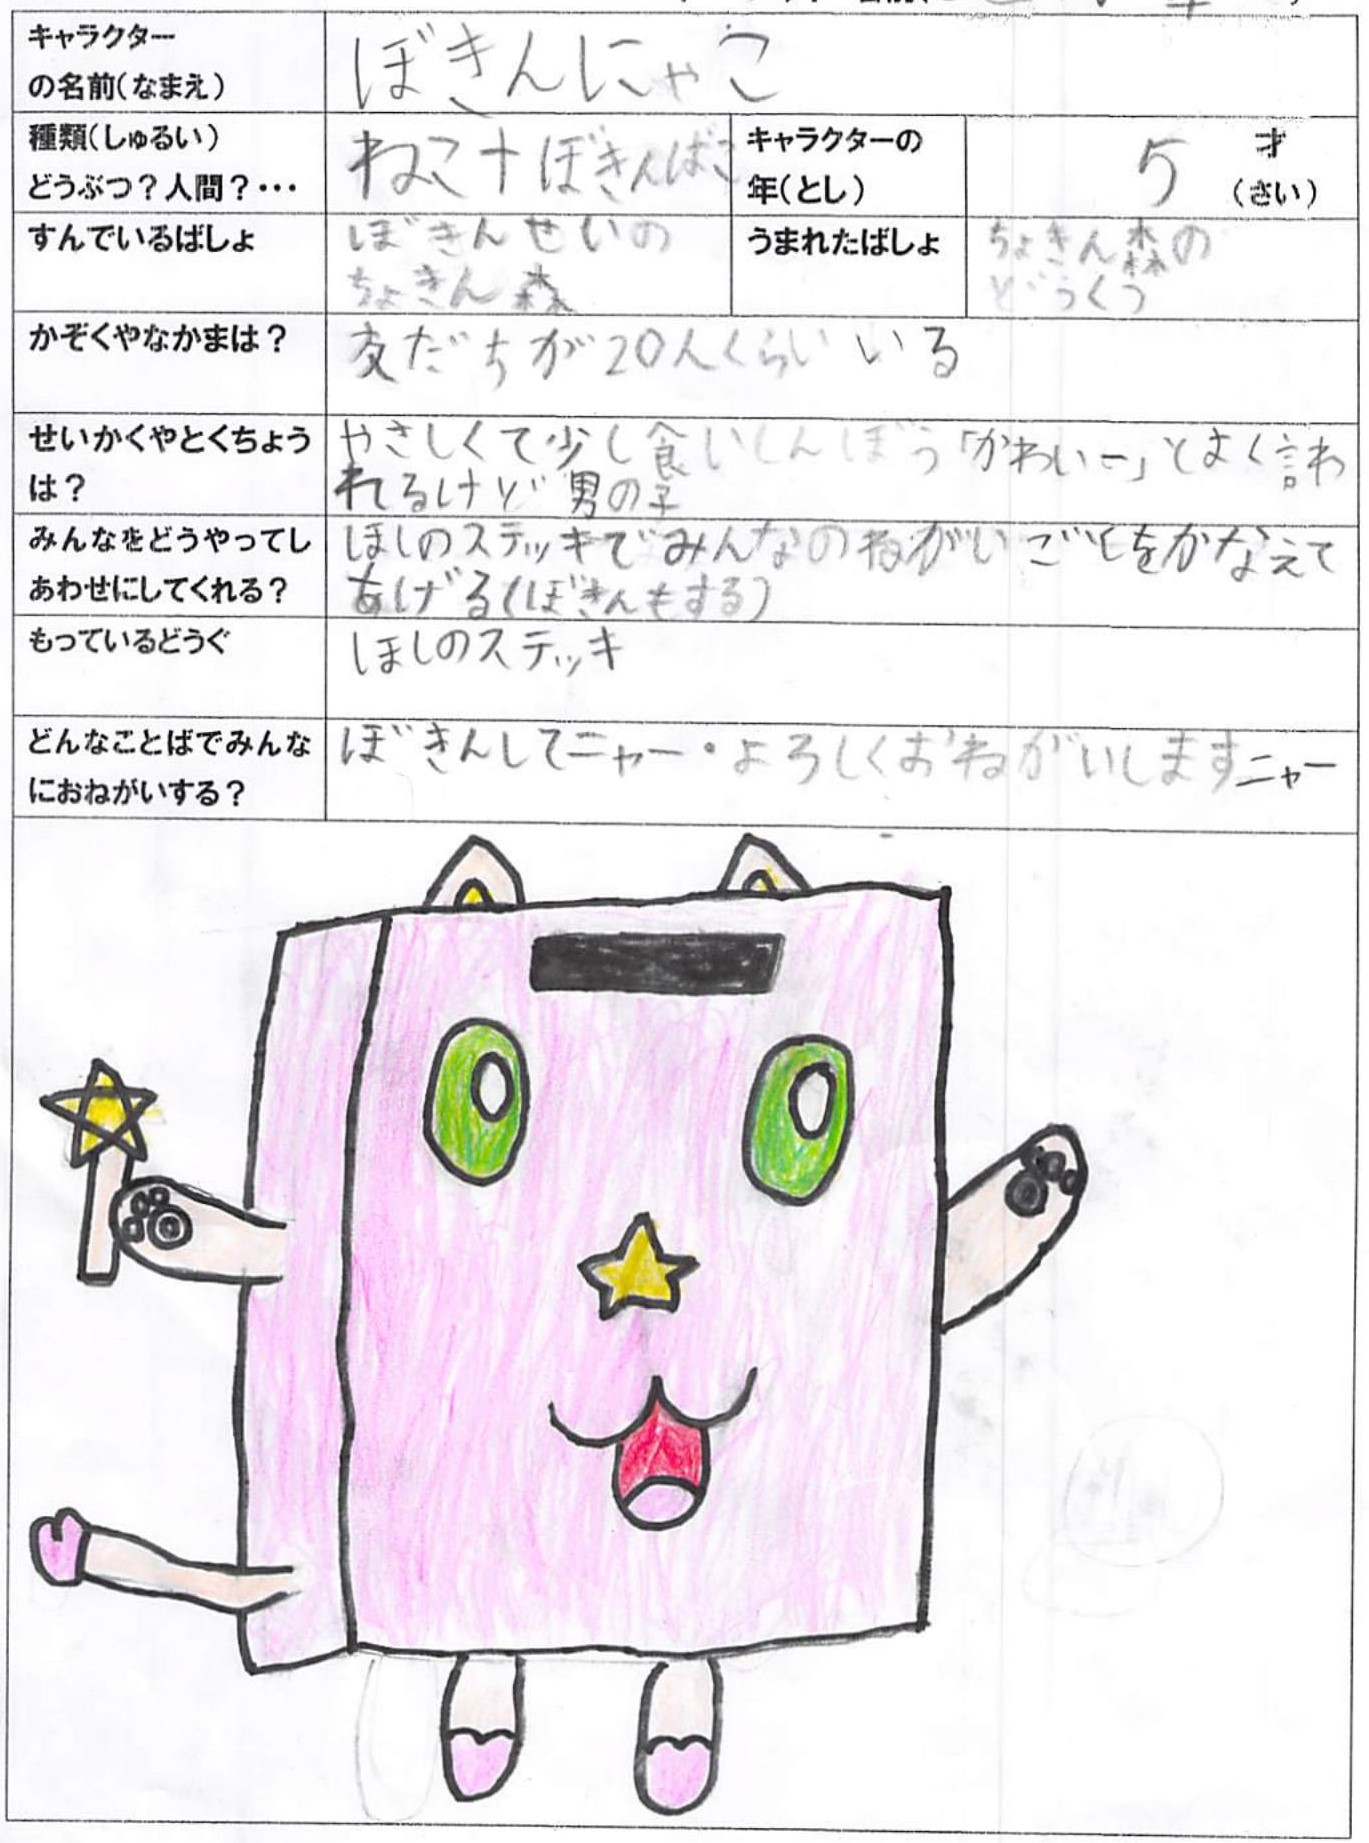 キャラクター
の名前(なまえ)
ぼきんにゃこ
種類(しゅるい)
どうぶつ?人間?・・・
ねこ+ぼきんばこ
キャラクターの
年(とし)
5 才
(さい)
すんでいるばしょ
ぼきんせいの
ちょきん森
うまれたばしょ
ちょきん森の
どうくつ
かぞくやなかまは?
友だちが20人くらいいる
せいかくやとくちょう
は?
やさしくて少し食いしんぼう「かわいー」とよく言わ
れるけど男の子
みんなをどうやってし
あわせにしてくれる?
ほしのステッキでみんなのねがいごとをかなえて
あげる(ぼきんもする)
もっているどうぐ
ほしのステッキ
どんなことばでみんな
におねがいする?
ぼきんしてニャー・よろしくおねがいしますニャー